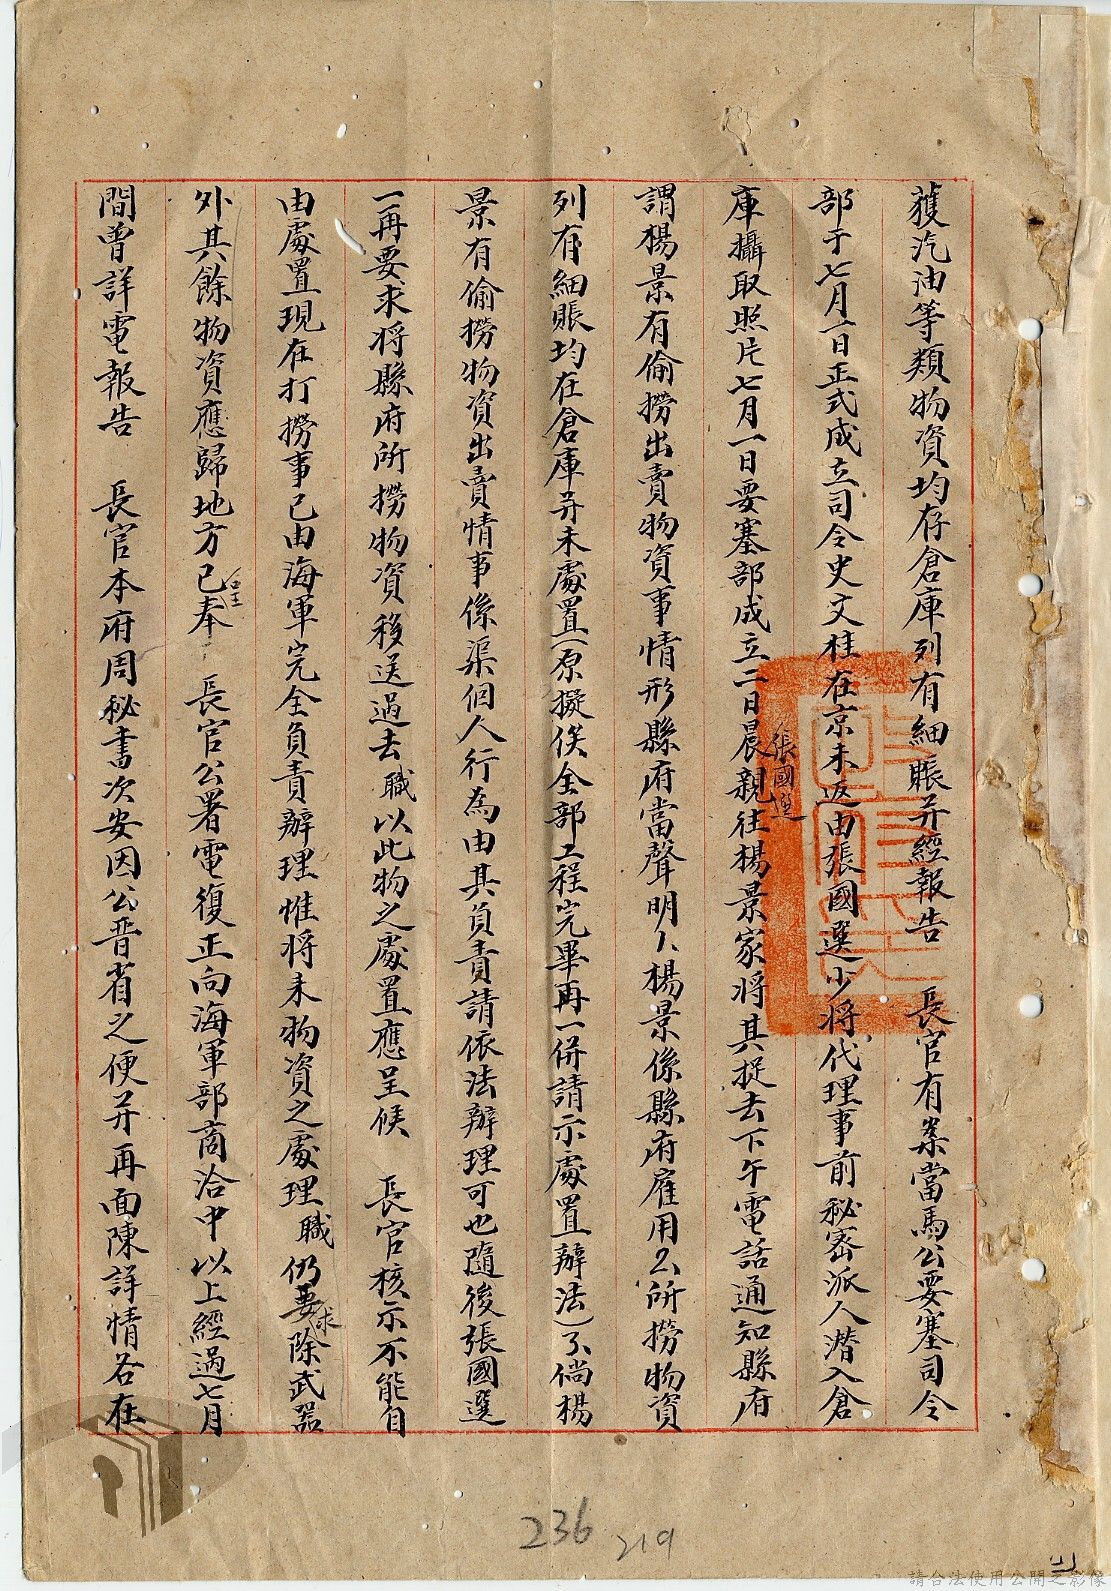 獲汽油等類物資均存倉庫列有細賬并經報告　長官有案當馬公要塞司令
部于七月一日正式成立司令史文桂在京未返由張國選少將代理事前秘密派人潛入倉
庫攝取照片七月一日要塞部成立二日晨親往楊景家將其捉去下午電話通知縣府
張國選
謂楊景有偷撈出賣物資事情形縣府當聲明1、楊景係縣府雇用2、所撈物資
列有細賬均在倉庫并未處置(原擬俟全部工程完畢再一併請示處置辦法)3、倘楊
景有偷撈物資出賣情事係渠個人行為由其負責請依法辦理可也隨後張國選
一再要求將縣府所撈物資移送過去職以此物之處置應呈候　長官核示不能自
由處置現在打撈事已由海軍完全負責辦理惟將來物資之處理職仍要求除武器
外其餘物資應歸地方已奉　長官公署電復正向海軍部商洽中以上經過七月
間曾詳電報告　長官本府周秘書次安因公晋省之便并再面陳詳情各在
236
219
請合法使用公開之影像